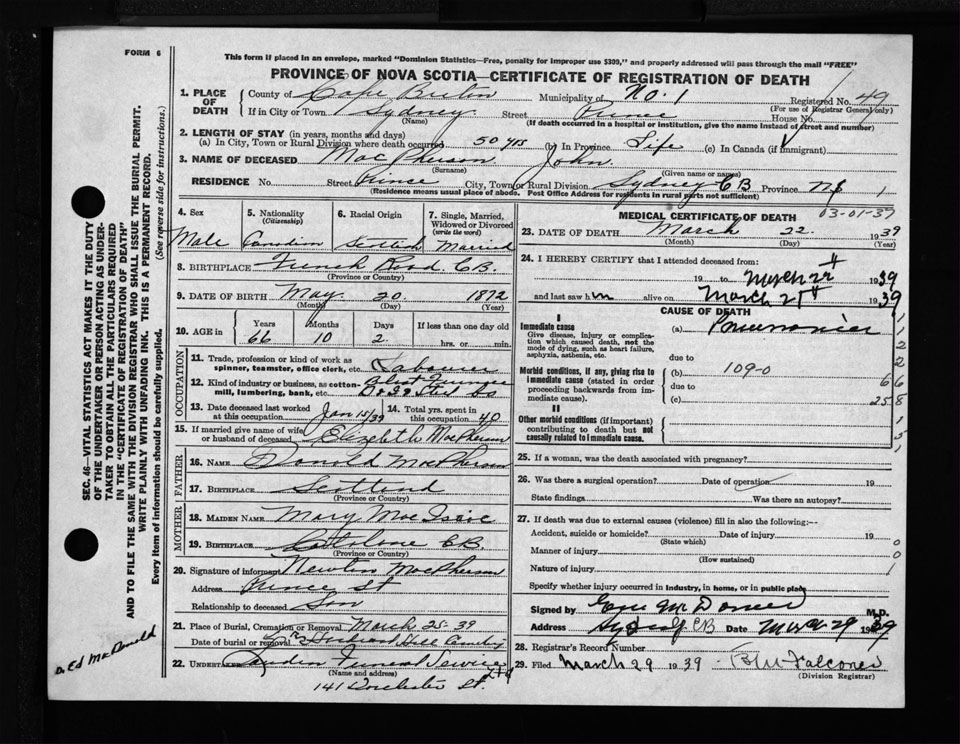 FORM 6
This form if placed in an envelope, marked "Dominion Statistics—Free, penalty for improper use $300," and properly addressed will pass through the mail "FREE"
PROVINCE OF NOVA SCOTIA—CERTIFICATE OF REGISTRATION OF DEATH
1. PLACE OF DEATH County of Cape Breton Municipality of No. 1 Registered No. 49
(For use of Registrar General only)
If in City or Town Sydney Street Prince House No.
(Name) (If death occurred in a hospital or institution, give the name instead of street and number)
2. LENGTH OF STAY (in years, months and days)
(a) In City, Town or Rural Division where death occurred 50 yrs (b) In Province Life (c) In Canada (if immigrant)
3. NAME OF DECEASED MacPherson John
(Surname) (Given name or names)
RESIDENCE No. Street Prince City, Town or Rural Division Sydney CB Province NS 1
(Residence means usual place of abode. Post Office Address for Residents in rural parts not sufficient)
4. Sex Male
5. Nationality (Citizenship) Canadian
6. Racial Origin Scottish
7. Single, Married, Widowed or Divorced (write the word) Married
8. BIRTHPLACE French Road. C.B.
(Province or Country)
9. DATE OF BIRTH May 20 1872
(Month) (Day) (Year)
10. AGE in Years 66 Months 10 Days 2. If less than one day old hrs. or min.
OCCUPATION
11. Trade, profession or kind of work as spinner, teamster, office clerk, etc. Labourer
12. Kind of industry or business, as cotton-mill, lumbering, bank, etc. Blast Furnace
13. Date deceased last worked at this occupation Jan 15/39
14. Total yrs. spent in this occupation 40
15. If married give name of wife or husband of deceased Elizabeth MacPherson
FATHER
16. NAME Donald MacPherson
17. BIRTHPLACE Scotland
(Province or Country)
MOTHER
18. MAIDEN NAME Mary MacIsaac
19. BIRTHPLACE C.B.
(Province or Country)
20. Signature of informant Newton MacPherson
Address Prince St
Relationship to deceased Son
21. Place of Burial, Cremation or Removal March 25-39
Date of burial or removal Hill Cemetery
22. UNDERTAKER Funeral Service Ltd
(Name and address)
141 Dorchester St.
MEDICAL CERTIFICATE OF DEATH
03-01-37
23. DATE OF DEATH March 22. 1939
(Month) (Day) (Year)
24. I HEREBY CERTIFY that I attended deceased from:
19 to March 22 1939
and last saw him alive on March 21 1939
CAUSE OF DEATH
I
Immediate cause
Give disease, injury or complication which caused death, not the mode of dying, such as heart failure, asphyxia, asthenia, etc.
(a) Pneumonia
due to
Morbid conditions, if any, giving rise to immediate cause (stated in order proceeding backwards from immediate cause).
(b) 109-0
due to
(c)
II
Other morbid conditions (if important) contributing to death but not causally related to immediate cause.
1
1
2
2
66
258
1
1
5
1
25. If a woman, was the death associated with pregnancy?
26. Was there a surgical operation? Date of operation 19
State findings Was there an autopsy?
27. If death was due to external causes (violence) fill in also the following:—
Accident, suicide or homicide? Date of injury 19 0
(State which)
Manner of injury 0
(How sustained)
Nature of injury 1
Specify whether injury occurred in industry, in home, or in public place
Signed by M.D.
Address CB Date Mar 29 1939
28. Registrar's Record Number
29. Filed March 29 1939 Falconer
(Division Registrar)
SEC. 46—VITAL STATISTICS ACT MAKES IT THE DUTY
OF THE UNDERTAKER OR PERSON ACTING AS UNDER-
TAKER TO OBTAIN ALL THE PARTICULARS REQUIRED
IN THE "CERTIFICATE OF REGISTRATION OF DEATH"
AND TO FILE THE SAME WITH THE DIVISION REGISTRAR WHO SHALL ISSUE THE BURIAL PERMIT.
WRITE PLAINLY WITH UNFADING INK. THIS IS A PERMANENT RECORD.
Every item of information should be carefully supplied. (See reverse side for instructions.)
D. Ed MacDonald